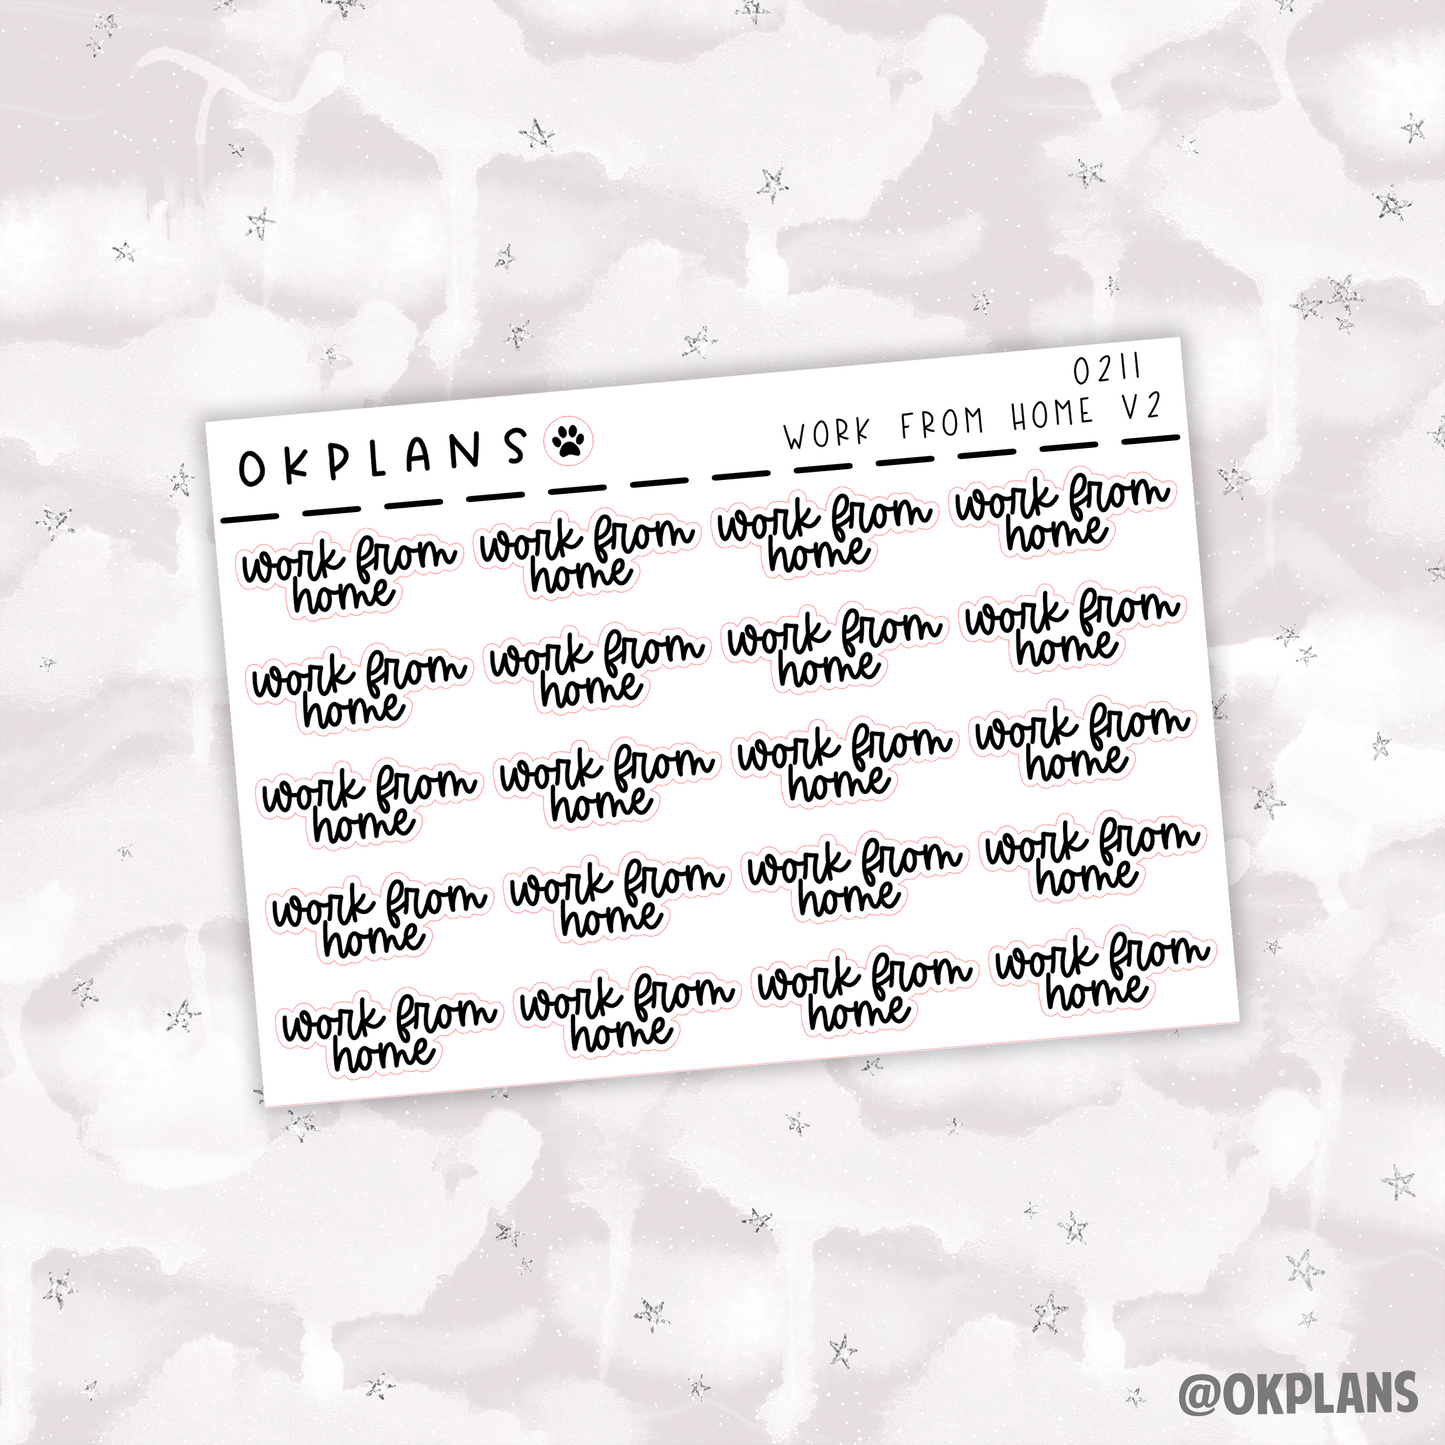 OKPLANS
0211
WORK FROM HOME V2
work from
home
work from
home
work from
home
work from
home
work from
home
work from
home
work from
home
work from
home
work from
home
work from
home
work from
home
work from
home
work from
home
work from
home
work from
home
work from
home
work from
home
work from
home
work from
home
work from
home
@OKPLANS